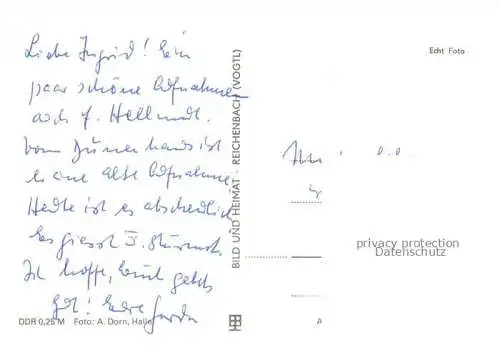 Liebe Ingrid! Ein
paar schöne Aufnahmen
auch f. Hellmut.
Vom Dünenhaus ist
es eine alte Aufnahme.
Heute ist es abscheulich
Es giesst u. stürmt.
Ich hoffe, Euch geht's
gut! Eure
DDR 0,25 M Foto: A. Dorn, Halle
BILD UND HEIMAT · REICHENBACH (VOGTL)
Echt Foto
privacy protection
Datenschutz
A